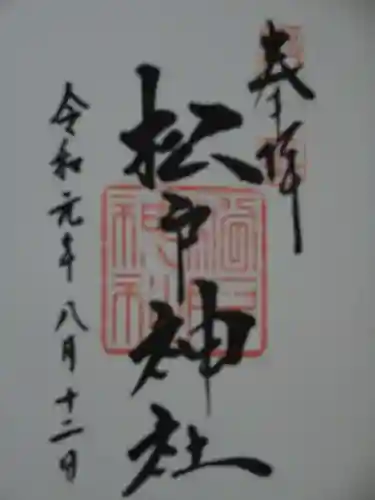 奉拝
松戸神社
令和元年八月十二日